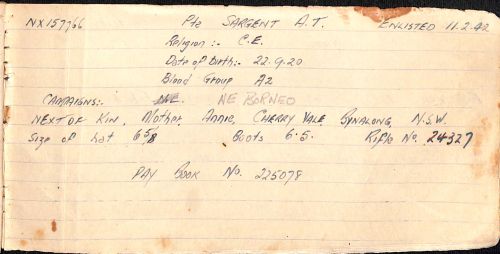 NX157766 Pte SARGENT A.T. ENLISTED 11.2.42
Religion :- C.E.
Date of Birth:- 22.9.20
Blood Group A2
CAMPAIGNS:- NE BORNEO
NEXT OF KIN, Mother, Annie, CHERRY VALE BINALONG, N.S.W.
Size of hat 6 5/8 Boots 6.5. Rifle No. 24327
PAY BOOK No. 225078